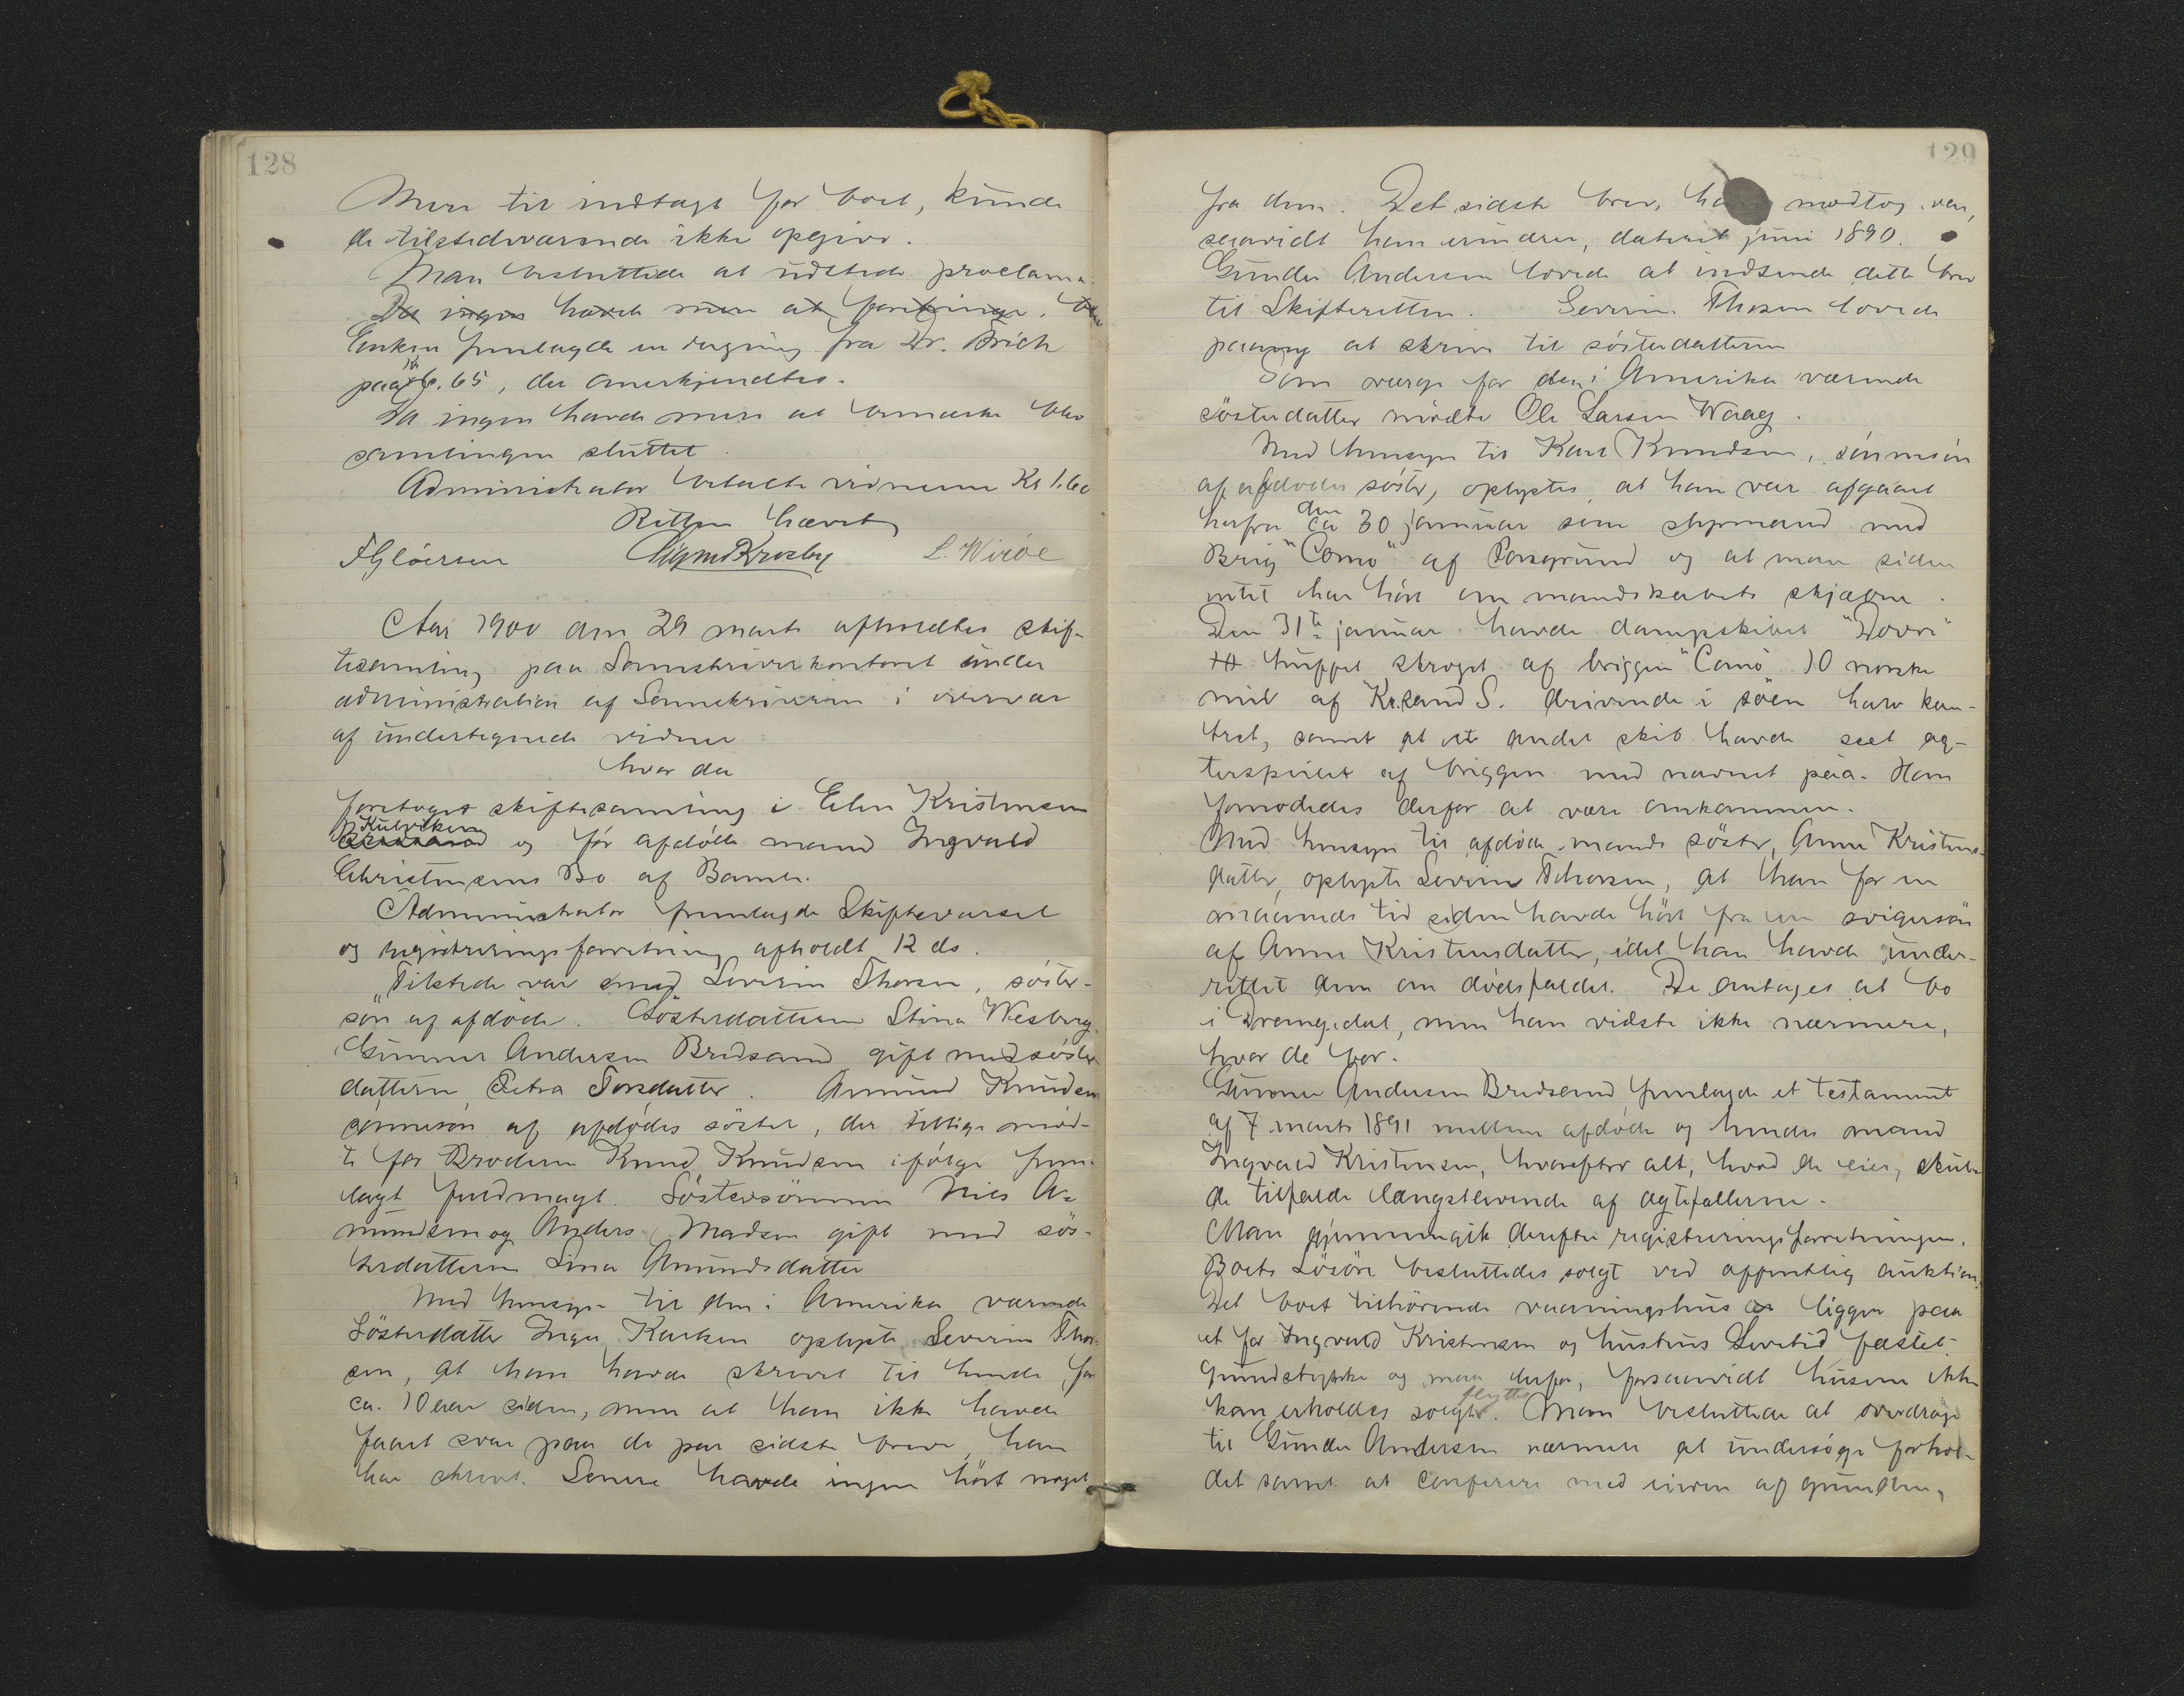 128
Mere til indtægt for boet, kunde
de tilstedeværende ikke opgive.
Man besluttede at udstede proclama.
Da ingen havde mere at forebringe, blev
Enken fremlagde en regning fra Dr. Brich
paa kr 6.65, der anerkjendtes.
Da ingen havde mere at bemærke blev
samlingen sluttet.
Administrator betalte vidnerne Kr 1.60
Retten hævet
F Gløersen Sigmd Krosby L. Wirøe
Aar 1900 den 29 marts afholdtes skif-
tesamling paa Sorenskriverkontoret under
administration af Sorenskriveren i overvær
af undertegnede vidner
hvor da
foretoges skiftesamling i Elen Kristensen
Kulviken og før afdøde mand Ingvald
Christensens Bo af Bamle.
Administrator fremlagde Skiftevarsel
og registreringsforretning afholdt 12 ds.
Tilstede var Severin Thorsen, søster-
søn af afdøde. Søsterdatteren Stina Wesberg
Gunner Andersen Bredsand gift med søster
datteren Petra Torsdatter. Amund Knudsen
sønnesøn af afdødes søster, der tillige mød-
te for Broderen Knud Knudsen ifølge frem-
lagt fuldmagt. Søstersønnen Nils A-
mundsen og Anders Madsen gift med søs-
terdatteren Lina Amundsdatter
Med hensyn til den i Amerika værende
Søsterdatter Inger Karken oplyste Severin Thor-
sen, at han havde skrevet til hende for
ca. 10 aar siden, men at han ikke havde
faaet svar paa de par sidste breve, han
har skrevet. Senere havde ingen hørt noget
129
fra dem. Det sidste brev, ha modtog var,
saavidt han erindrer, dateret juni 1890.
Gunder Andersen lovede at indsende dette brev
til Skifteretten. Severin Thosen lovede
paany at skrive til søsterdatteren
Som værge for den i Amerika værende
søsterdatter mødte Ole Larsen Waag.
Med hensyn til Karl Knudsen, sønnesøn
af afdødes søster, oplystes, at han var afgaaet
herfra den ca 30 januar som styrmand med
Brig "Como" af Porsgrund og at man siden
intet har hørt om mandskabets skjæbne.
Den 31te januar havde dampskibet "Dovre"
truffet skroget af briggen "Como" 10 norske
mil af Kr.sand S. drivende i søen halv kan-
tret, samt at et andet skib havde seet ag-
terspeilet af briggen med navnet paa. Han
formodedes derfor at være omkommen.
Med hensyn til afdøde mands søster, Anne Kristens-
datter, oplyste Severin Thorsen, at han for en
maaneds tid siden havde hørt fra en svigersøn
af Anne Kristensdatter, idet han havde under-
rettet dem om dødsfaldet. De antages at bo
i Drangedal, men han vidste ikke nærmere,
hvor de bor.
Gunner Andersen Bredsand fremlagde et testament
af 7 marts 1891 mellem afdøde og hendes mand
Ingvald Kristensen, hvorefter alt, hvad de eier, skul-
de tilfalde længstlevende af ægtefællerne.
Man gjennemgik derefter registreringsforretningen.
Boets Løsøre besluttedes solgt ved offentlig auktion.
Det boet tilhørende vaaningshus ligger paa
et for Ingvald Kristensen og hustrus Levetid fæstet
Grundstykke og maa derfor, forsaavidt husene ikke
kan erholdes solgte flyttes. Man besluttede at overdrage
til Gunder Andersen nærmere at undersøge forhol-
det samt at conferere med eieren af grunden,